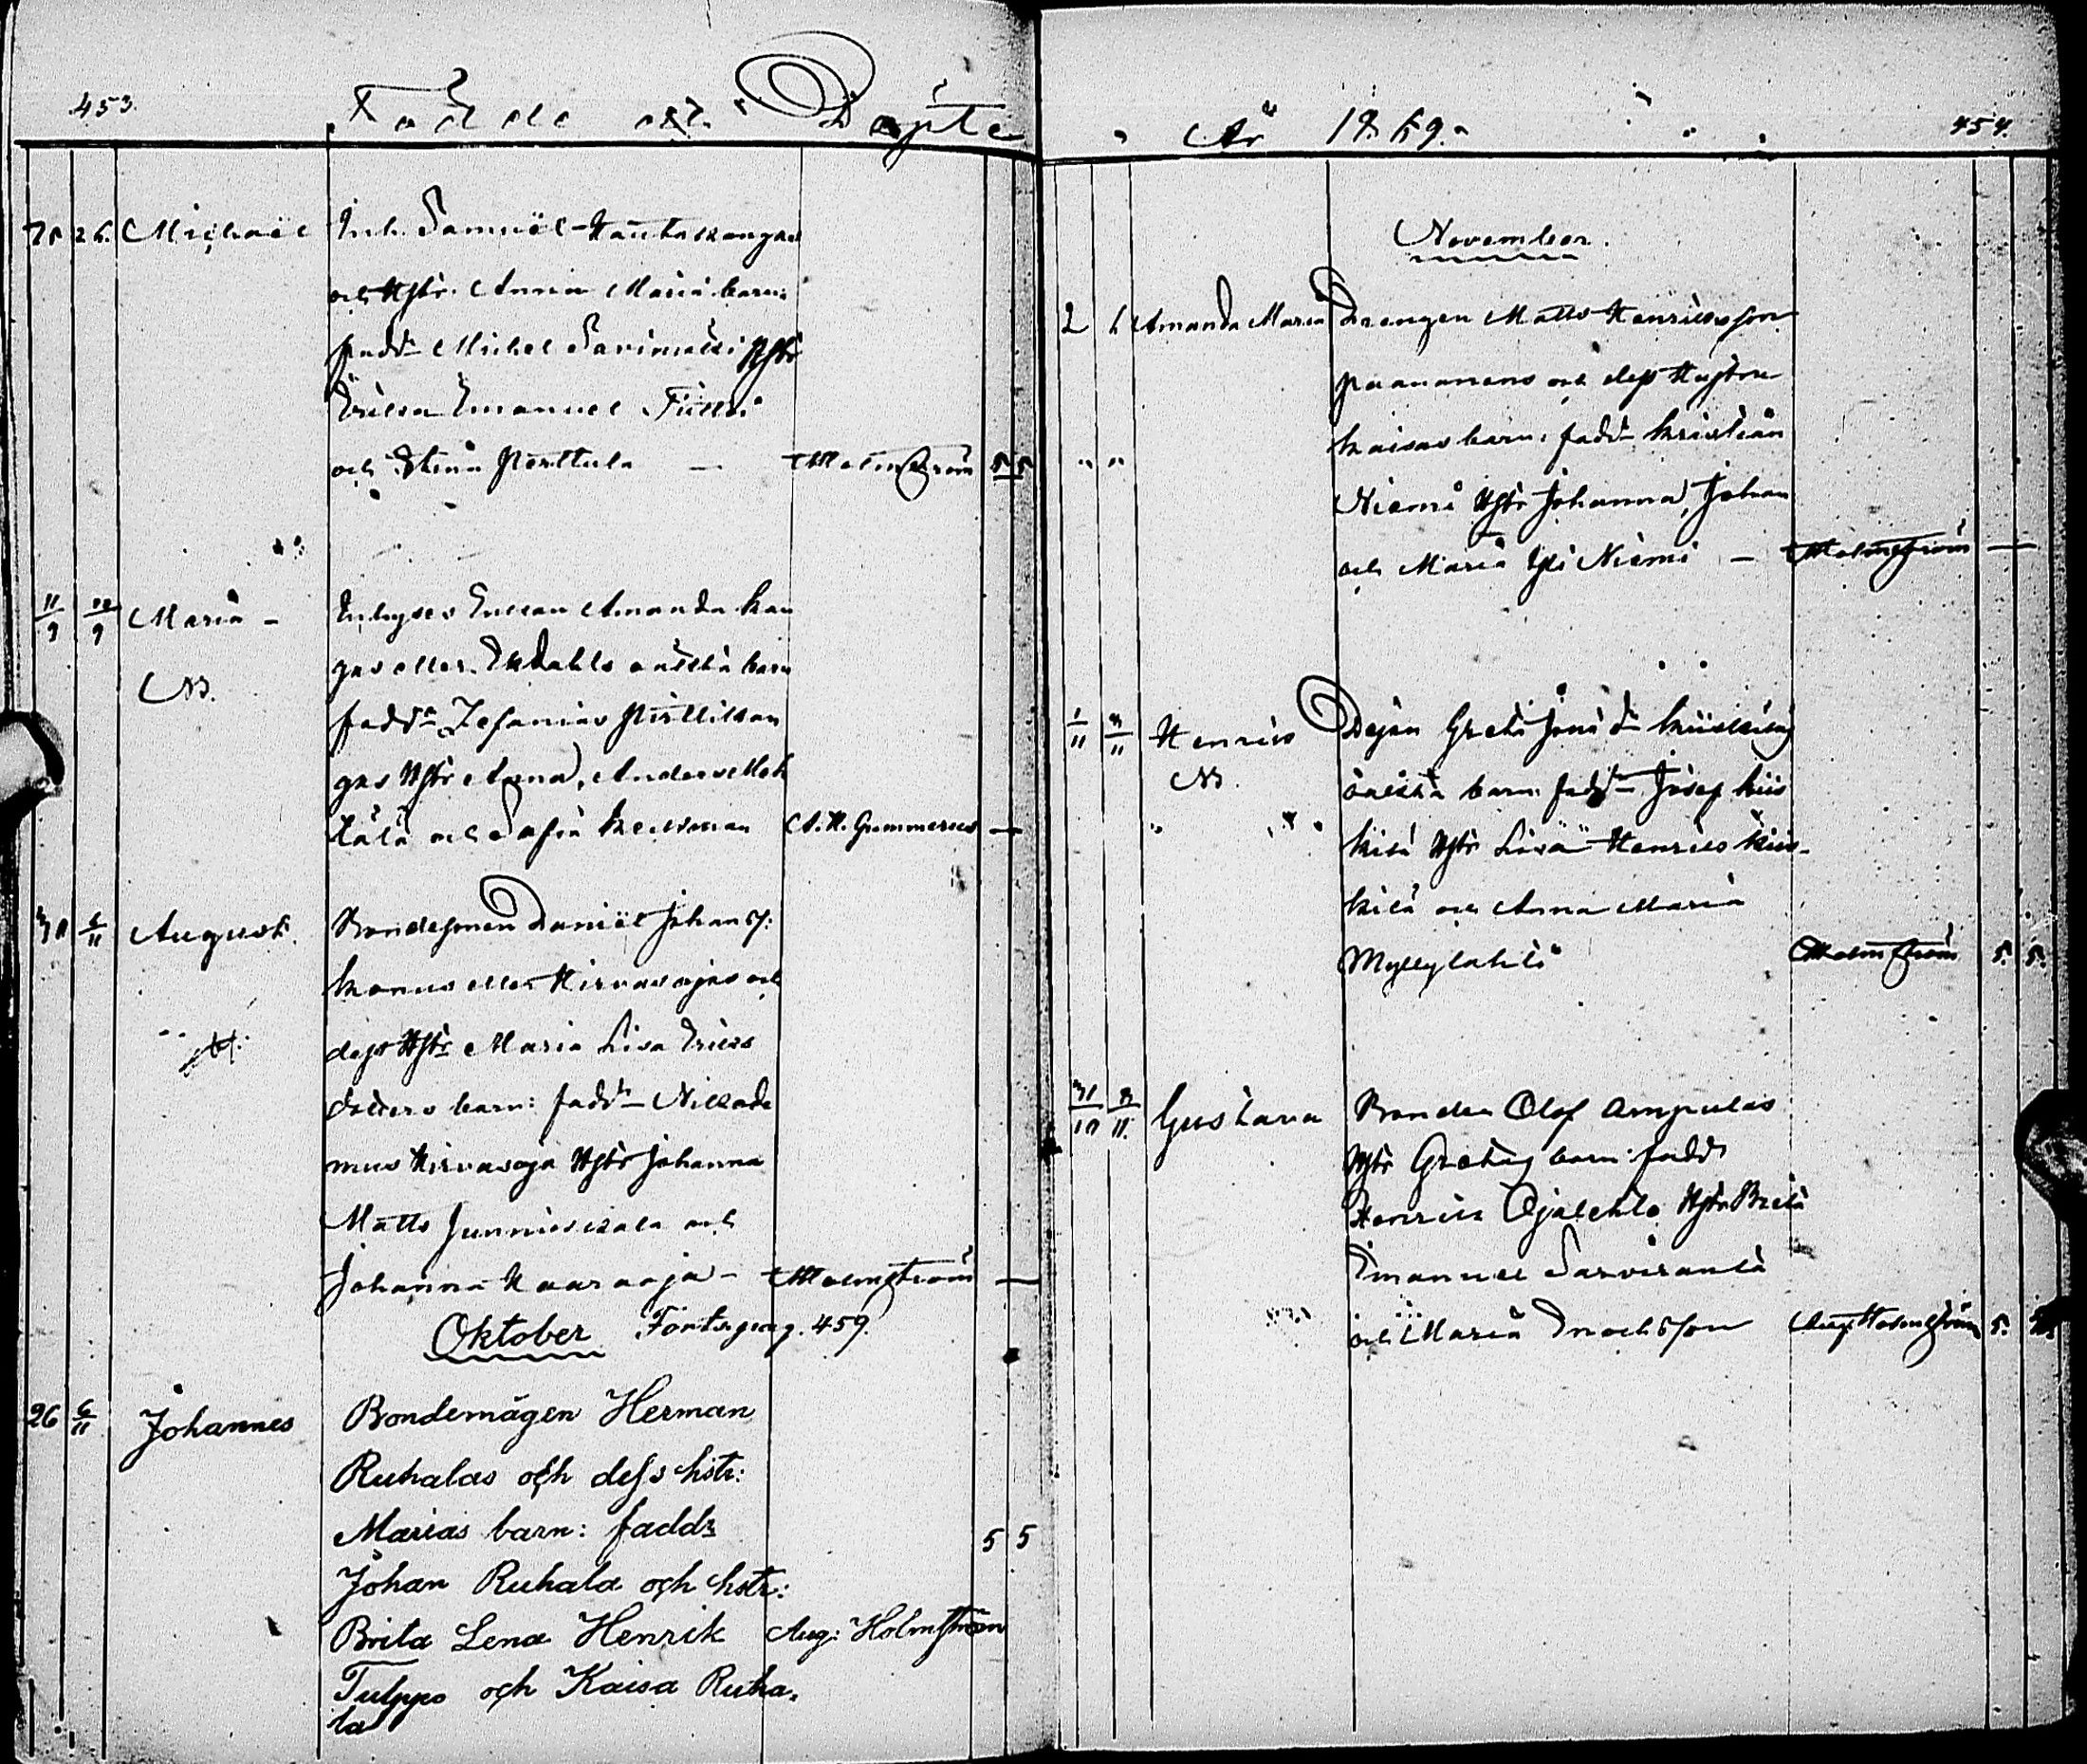 453.
Födde och Döpte
25 26. Michaël Inh. Samuël Hautakangas
och Hstr. Anna Maria barn:
fadd. Michel Savimäki Hstr
Erika Emanuel
och Stina Penttula — Holmström 5 5
11/9 12/9 Maria — Inhyses Enkan Amanda Kan
gas eller Ekdahls oäckta barn
NB.
fadd. Zefanias
gas Hstr Anna, Anders Mok
kälä och Sofia A. H. Gummerus —
30 6/11 August. Bondesonen Daniël Johans:
Kanus eller Hirvasojas och
dess Hstr Maria Lisa Erics
dotters barn: fadd. Nikode
mus Hirvasoja Hstr Johanna
Matts Junnikkala och
Johanna Haaraoja — Holmström —
Oktober Forts. pag. 459.
26 6/11 Johannes Bondemågen Herman
Ruhalas och dess hstr:
Marias barn: faddr
5 5
Johan Ruhala och hstr:
Brita Lena Henrik Aug: Holmström
Tulppo och Kaisa Ruha-
la
År 1869.
454.
November.
2 4 Amanda Maria Drengen Matts Henriksson
Paananens och dess Hustru
Kaisas barn: fadd. Kristian
" "
Niemi Hstr Johanna, Johan
och Maria Yli Niemi — Holmström —
1/11 3/11 Henrik Dejan Greta Jonæ dr Kiiskiläs
NB.
oäckta barn: fadd. Josef Kiis
kilä Hstr Lisa Henrik Kiis-
kilä och Anna Maria
Myllylahti Holmström 5. 5.
31/10 3/11. Gustava Bonden Olof Ampulas
Hstr Gretas barn: fadd
Henrik Ojalehto Hstr Brita
Emanuel Sarviranta
och Maria Enochsson Aug. Holmström 5.